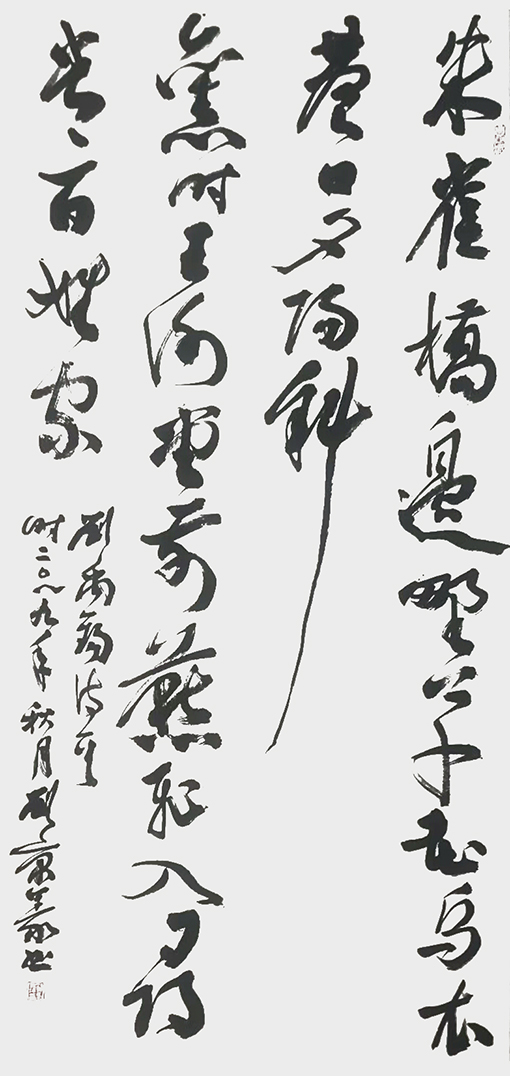 朱雀橋邊野草花烏衣
巷口夕陽斜
舊時王謝堂前燕飛入尋
常百姓家
劉禹錫詩
时二〇九年秋月